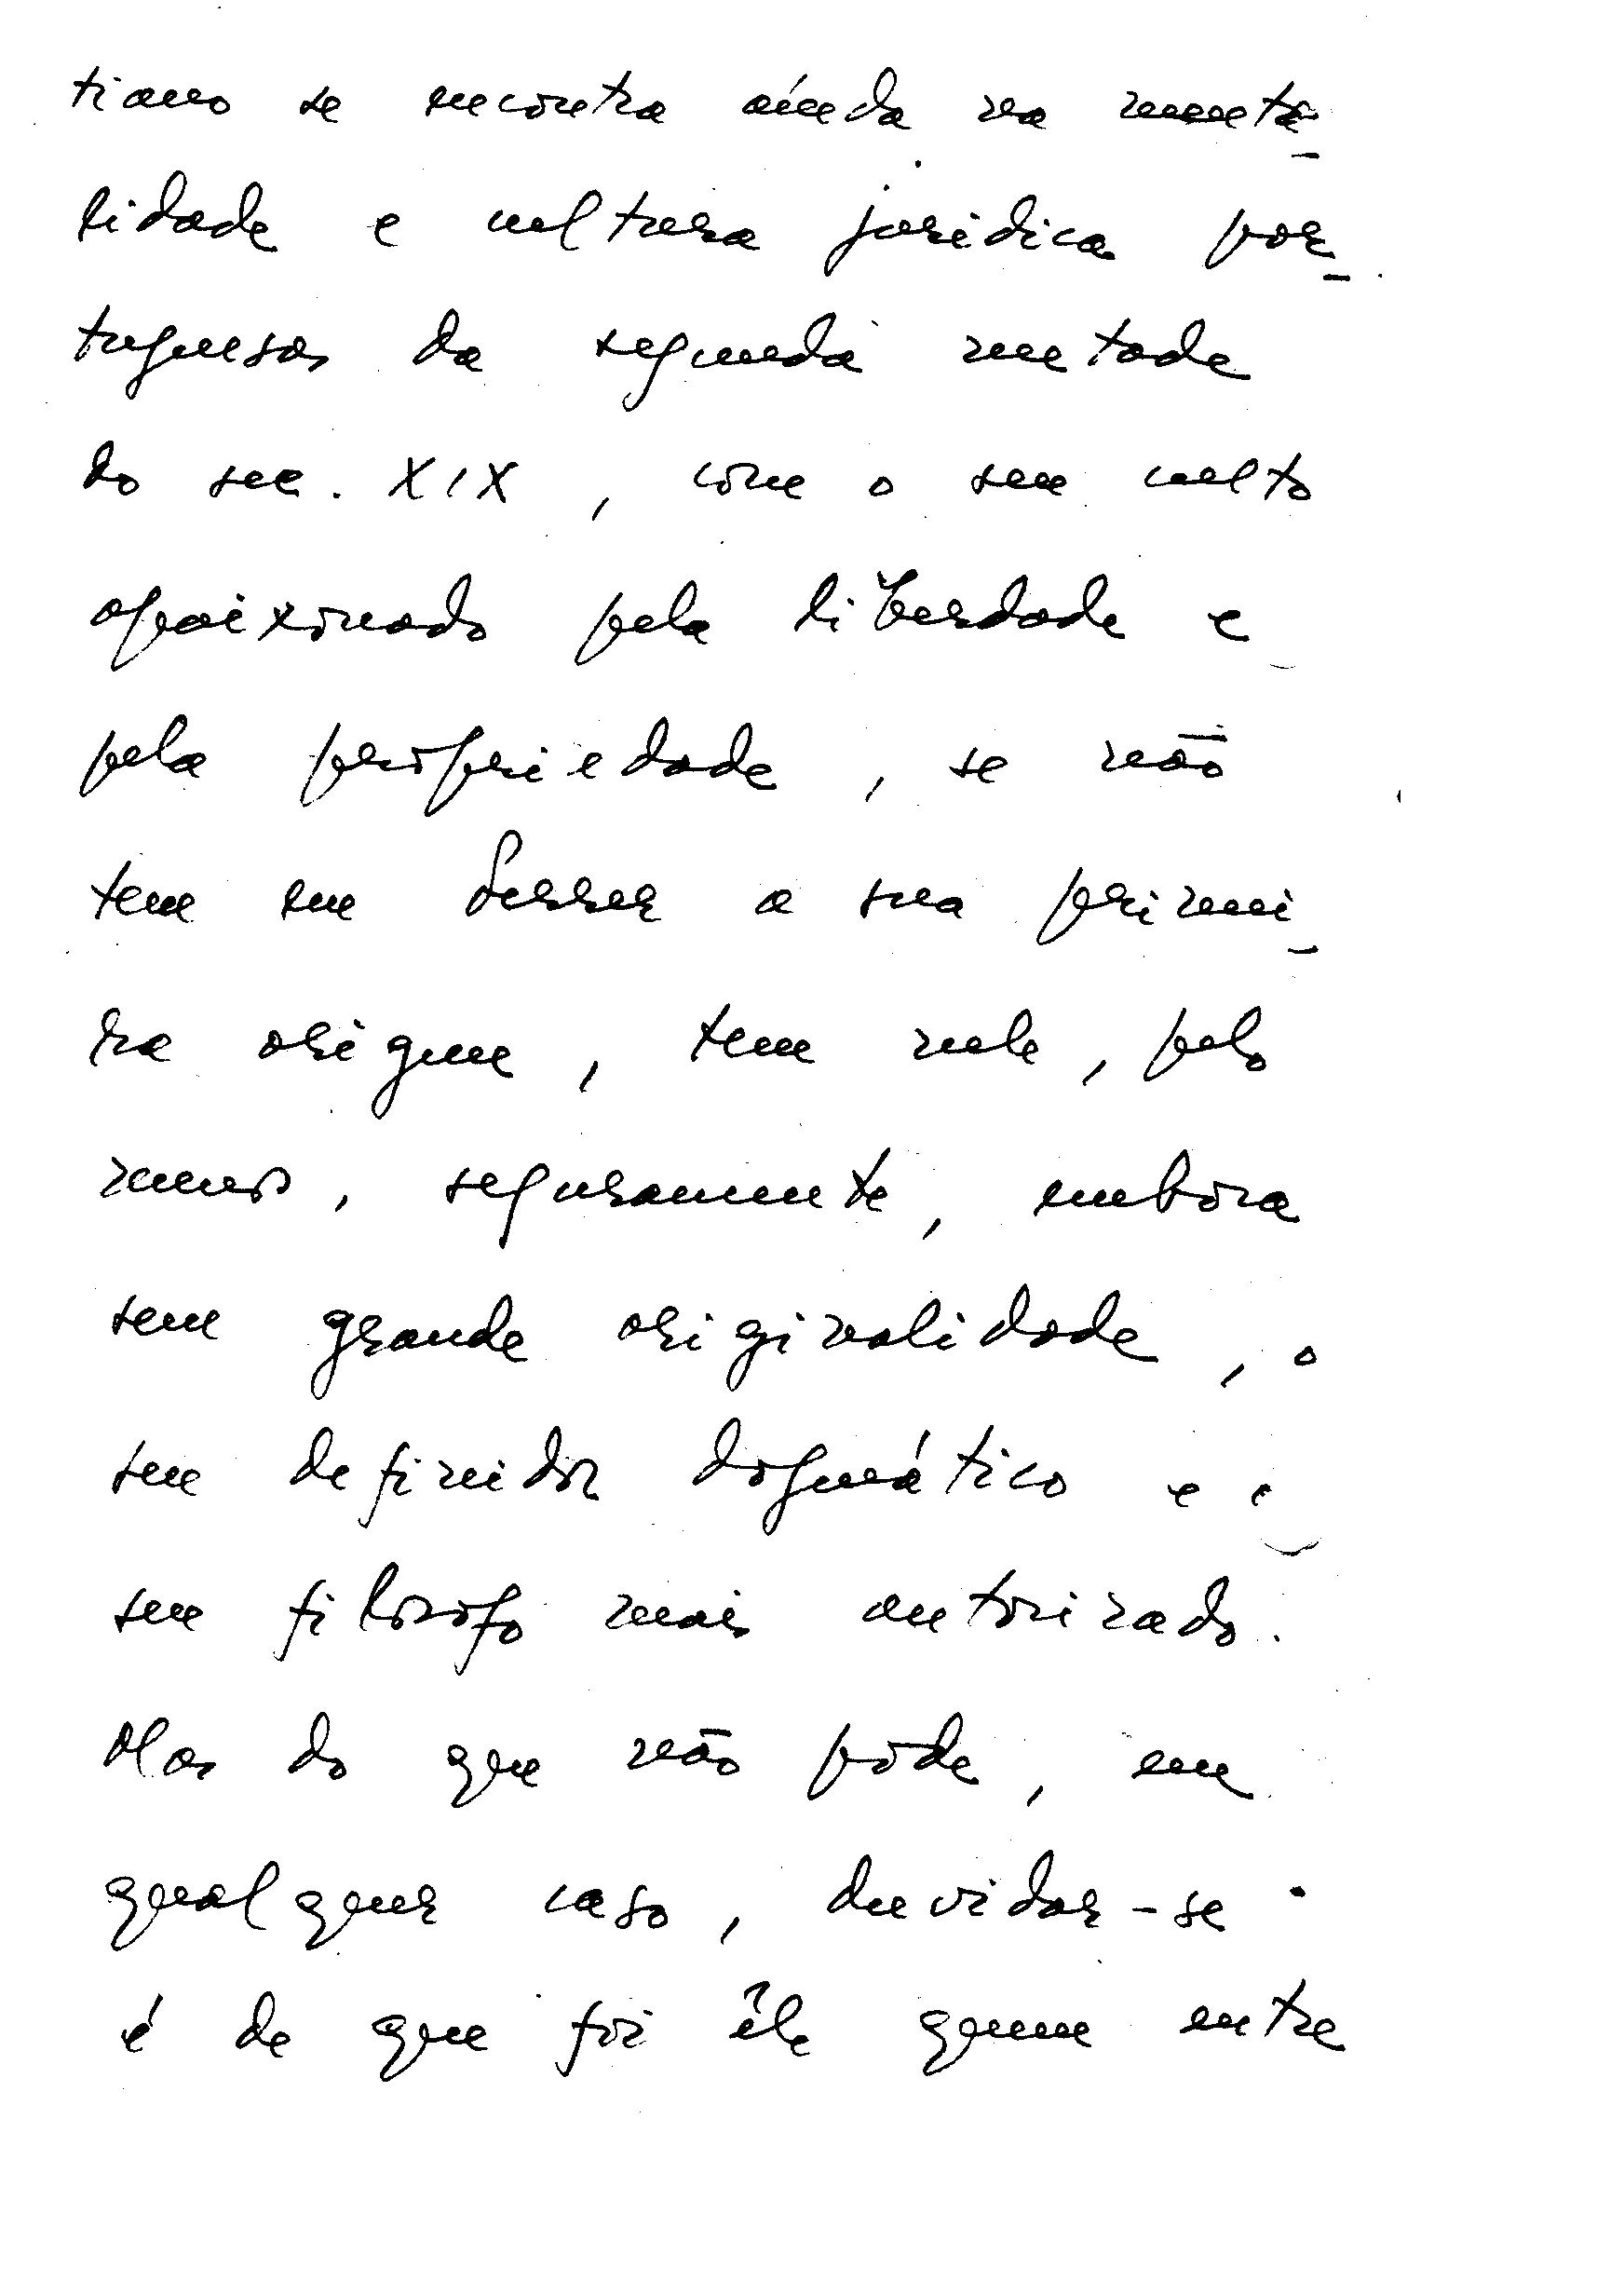 tiano se encontra ainda na menta-
lidade e cultura jurídica por-
tuguesas da segunda metade
do sec. XIX, com o seu culto
apaixonado pela liberdade e
pela propriedade, se não
tem em Ferrer a sua primei-
ra origem, tem nele, pelo
menos, seguramente, embora
sem grande originalidade, o
seu definidor dogmático e o
seu filosofo mais autorizado.
Mas do que não póde, em
qualquer caso, duvidar-se
é de que foi êle quem entre